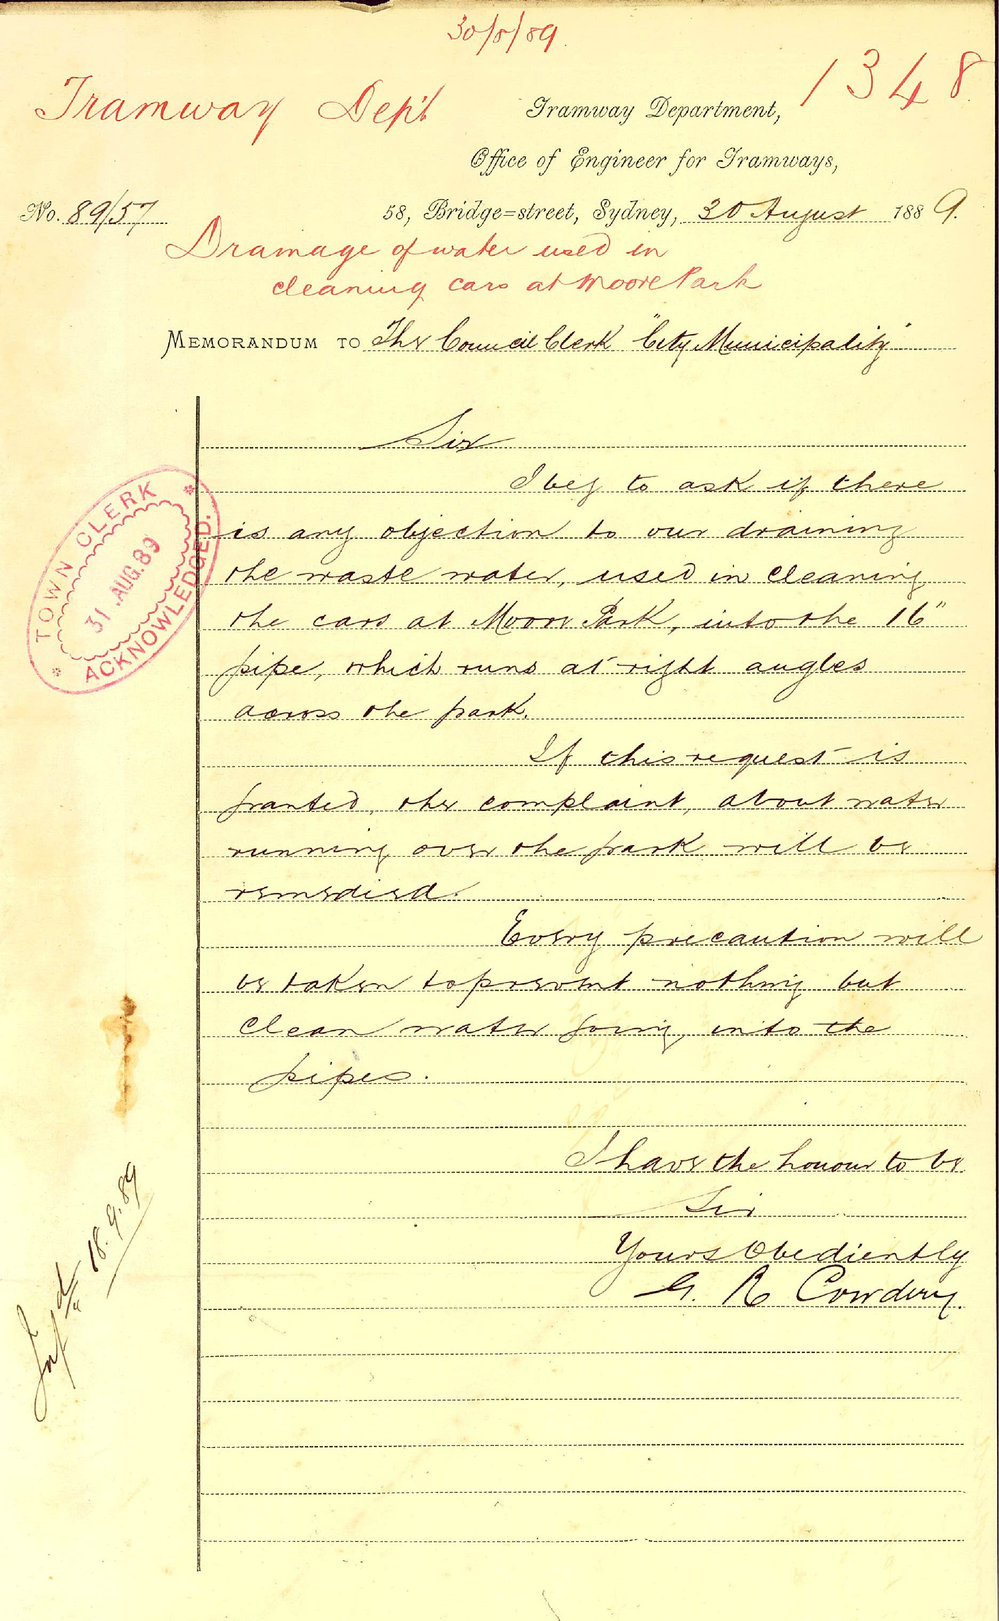 30/8/89
1348
Tramway Dep't
Tramway Department,
Office of Engineer for Tramways,
No. 89/57
58, Bridge=street, Sydney, 30 August 1889.
Drainage of water used in
cleaning cars at Moore Park
MEMORANDUM TO The Council Clerk "City Municipality"
Sir
I beg to ask if there
is any objection to our draining
the waste water, used in cleaning
the cars at Moore Park, into the 16"
pipe, which runs at right angles
across the park.
If this request is
granted, the complaint, about water
running over the park will be
remedied.
Every precaution will
be taken to prevent nothing but
clean water going into the
pipes.
I have the honour to be
Sir
Yours Obediently
G. R Cowdery.
TOWN CLERK
31 AUG. 89
ACKNOWLEDGED.
Inf d 18.9.89